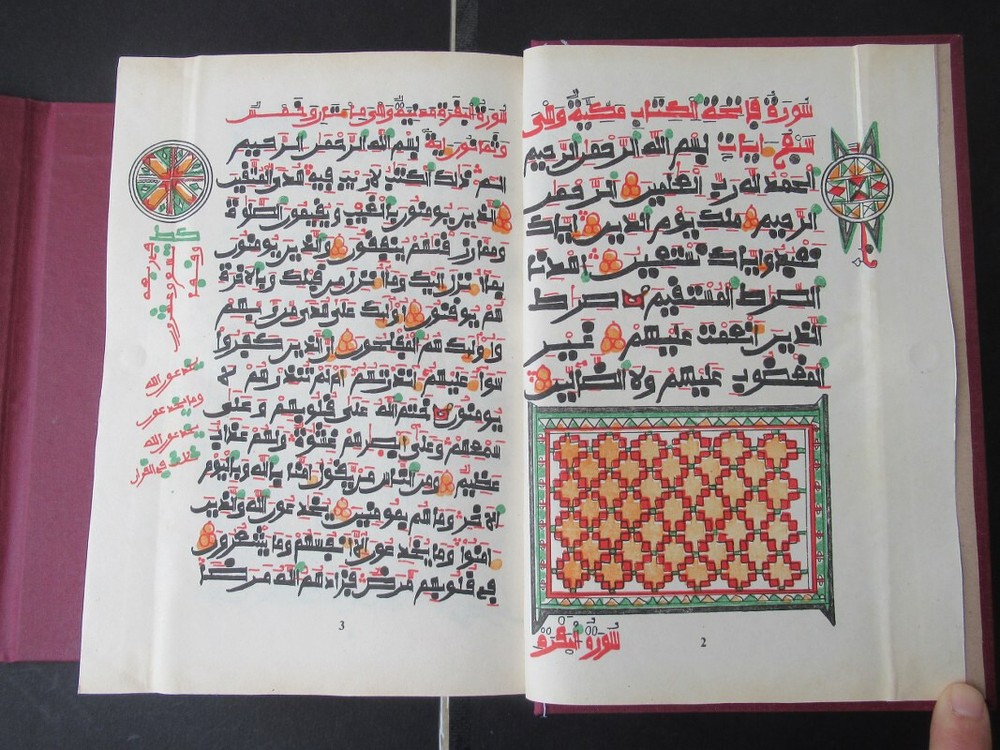 سورة فاتحة الكتاب مكية وهى
سبع ءايات بسم الله الرحمن الرحيم
الحمد لله رب العلمين الرحمن
الرحيم ملك يوم الدين إياك
نعبد وإياك نستعين اهدنا
الصراط المستقيم صراط
الذين أنعمت عليهم غير
المغضوب عليهم ولا الضالين
سورة البقرة
2
سورة البقرة مدنية وهى مائتان وخمس
وثمانون ءاية بسم الله الرحمن الرحيم
الم ذلك الكتب لا ريب فيه هدى للمتقين
الذين يومنون بالغيب ويقيمون الصلوة
ومما رزقنهم ينفقون والذين يومنون
بما أنزل إليك وما أنزل من قبلك وبالاخرة
هم يوقنون أولئك على هدى من ربهم
وأولئك هم المفلحون إن الذين كفروا
سواء عليهم ءانذرتهم أم لم تنذرهم لا
يومنون ختم الله على قلوبهم وعلى
سمعهم وعلى أبصرهم غشوة ولهم عذاب
عظيم ومن الناس من يقول ءامنا بالله وباليوم
الاخر وما هم بمومنين يخدعون الله والذين
ءامنوا وما يخدعون إلا أنفسهم وما يشعرون
فى قلوبهم مرض فزادهم الله مرضا
يخدعون الله
وما يخدعون
يخدعون الله
3